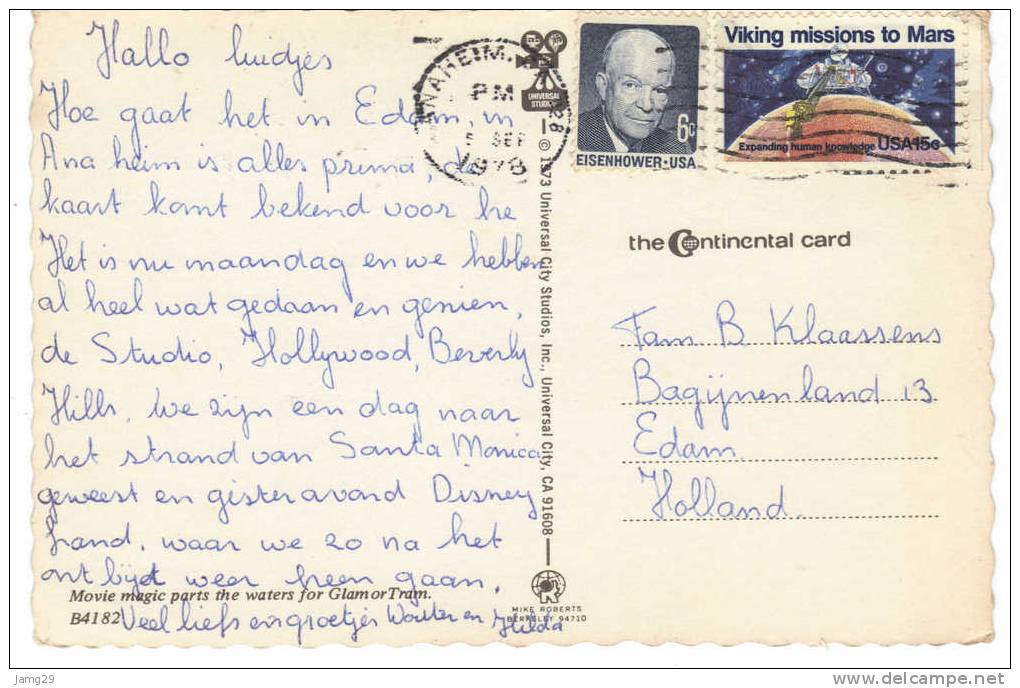 Hallo luidjes
Hoe gaat het in Edam, in
Anaheim is alles prima, de
kaart komt bekend voor he
Het is nu maandag en we hebben
al heel wat gedaan en genien,
de Studio, Hollywood, Beverly
Hills, we zijn een dag naar
het strand van Santa Monica
geweest en gisteravond Disney
Land, waar we zo na het
ontbijt weer heen gaan,
Veel liefs en groetjes Wouter en Hilda
Movie magic parts the waters for GlamorTram.
B4182
ANAHEIM,
PM
SEP
1978
928
UNIVERSAL
STUDIOS
© 1973 Universal City Studios, Inc., Universal City, CA 91608
MIKE ROBERTS
BERKELEY 94710
6c
EISENHOWER·USA
Viking missions to Mars
Expanding human knowledge USA 15c
the Continental card
Fam B Klaassens
Bagijnenland 13
Edam
Holland
Jamg29
http://www.delcampe.net